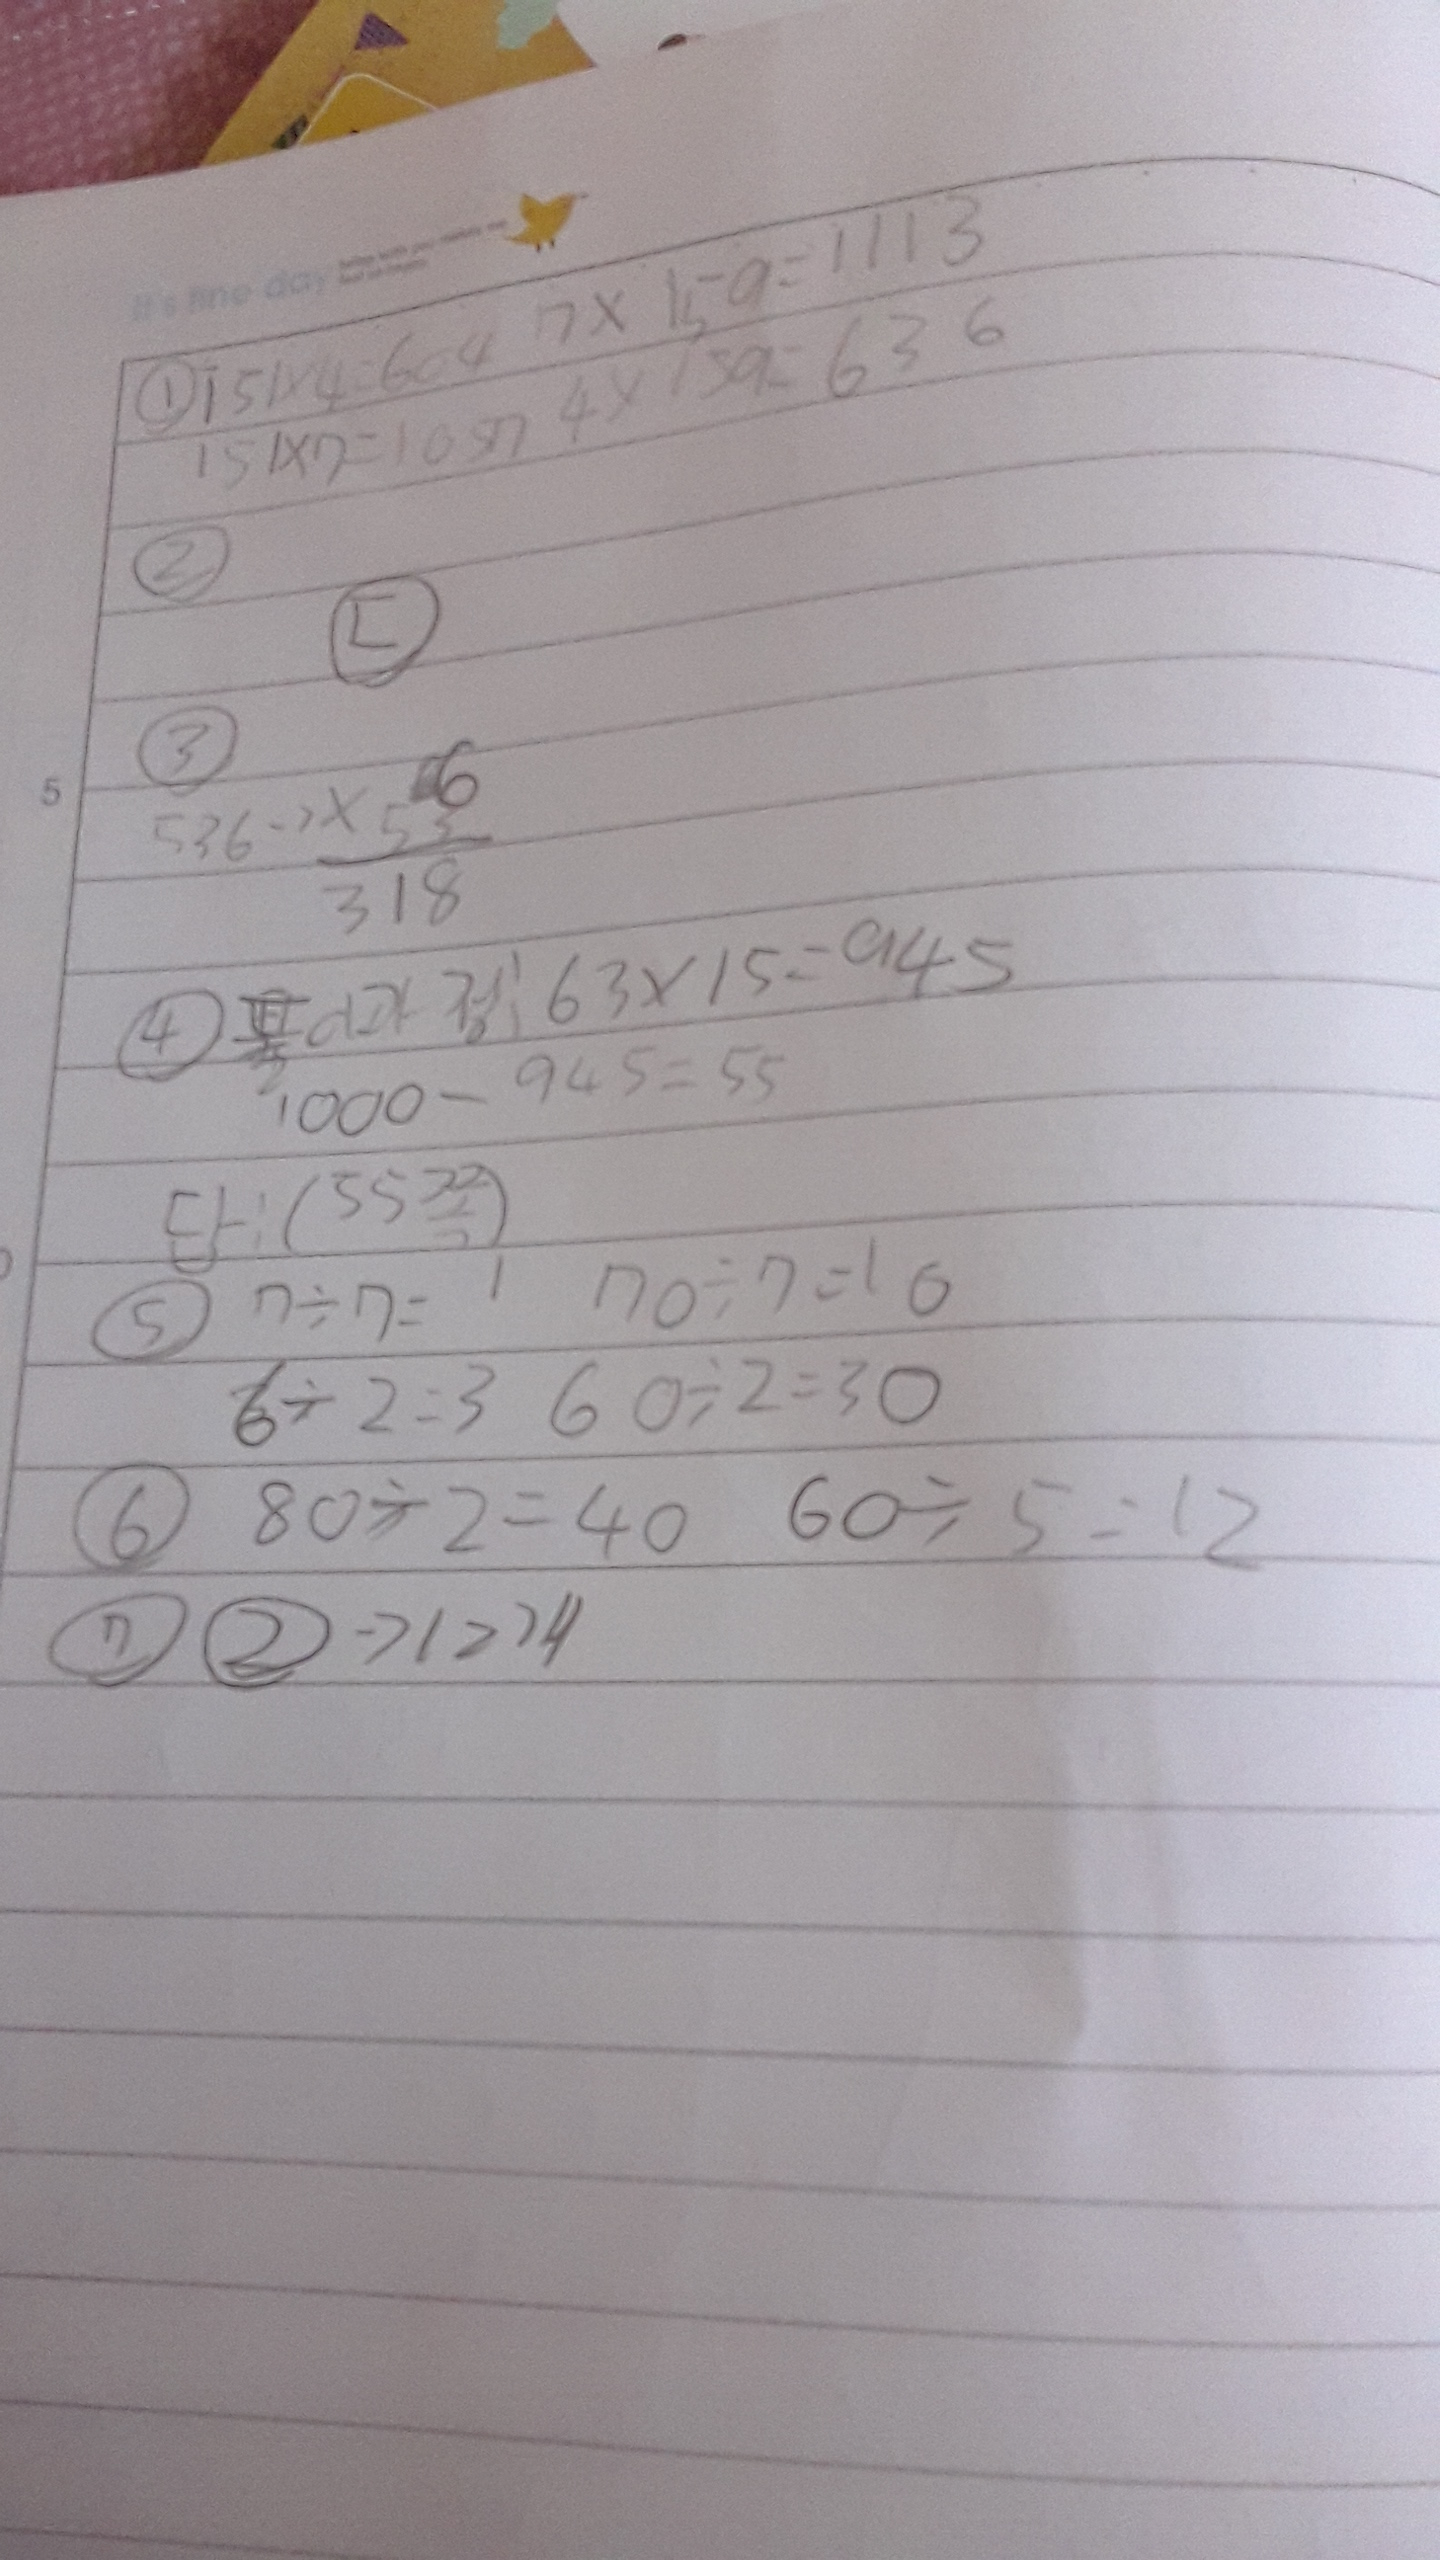 It's fine day
① 151×4=604 7×159=1113
151×7=1057 4×159=636
②
ㄷ
③
6
5
536→×53
318
④ 풀이과정: 63×15=945
1000-945=55
답:(55쪽)
⑤ 7÷7=1 70÷7=10
6÷2=3 60÷2=30
⑥ 80÷2=40 60÷5=12
⑦ ②→